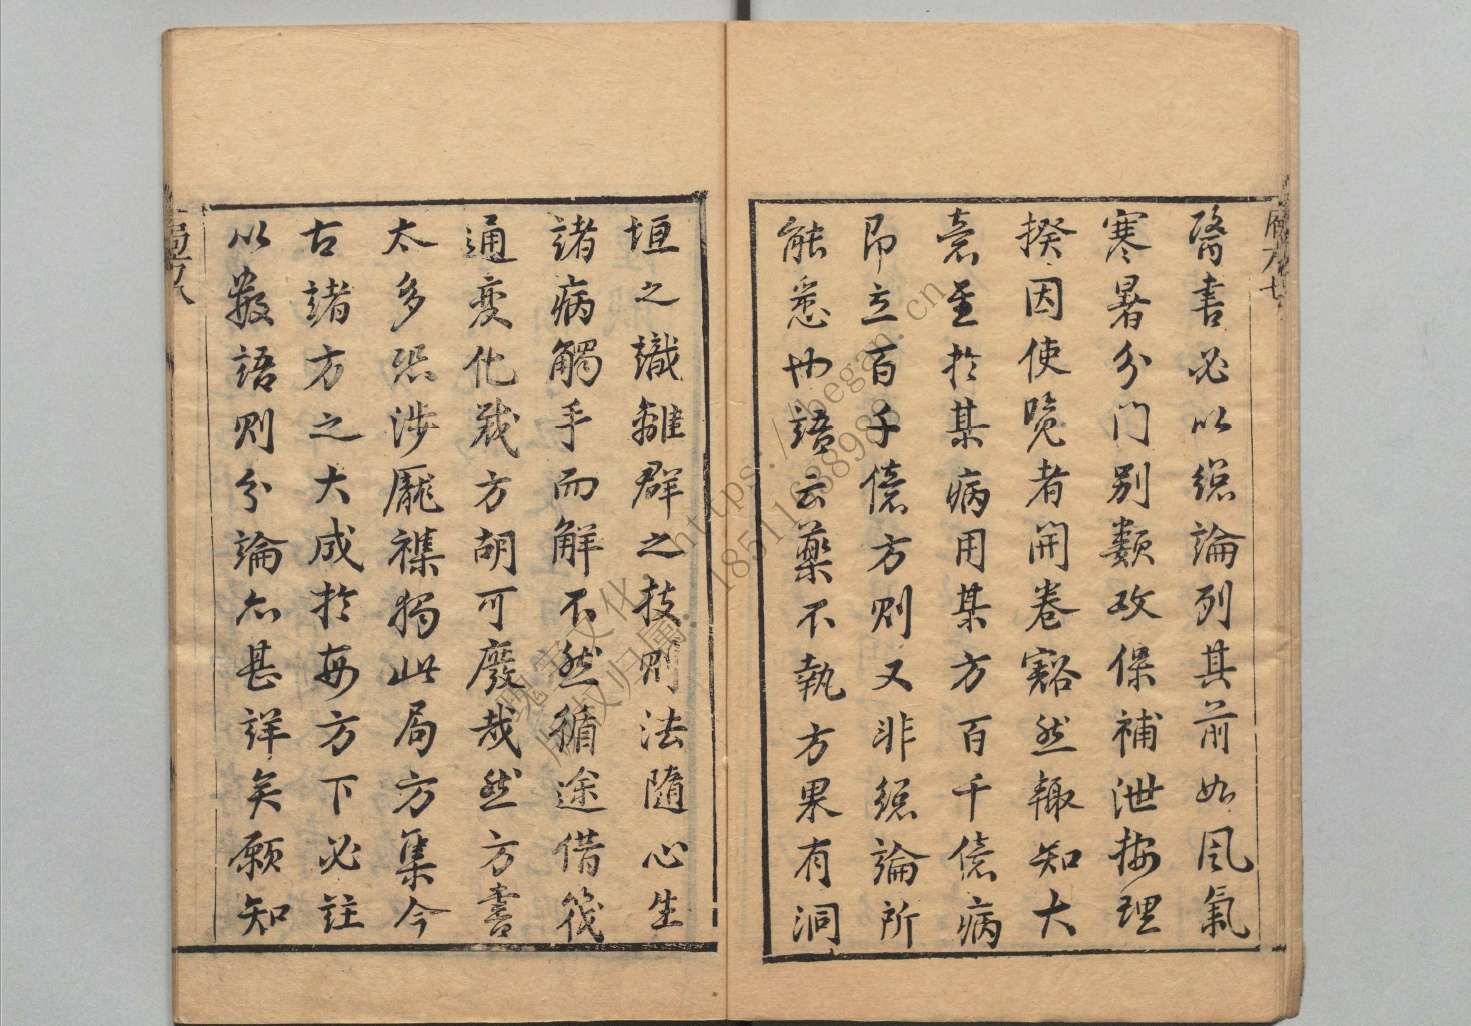 醫書必以總論列其前如風氣
寒暑分门别類攻保補泄按理
揆因使覧者開卷豁然輙知大
意至於某病用某方百千億病
即立百千億方則又非總論所
能悉也語云藥不執方果有洞
垣之識離群之技則法隨心生
諸病觸手而解不然循途借筏
通變化裁方胡可廢哉然方書
太多恐涉龐襍獨此局方集今
古諸方之大成於每方下必註
以數語則分論亦甚詳矣願知
局方八
https://hegan.cn
18511638983
瑰宝文化
版权归属